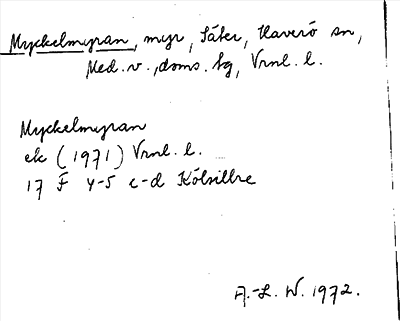 Myckelmyran, myr, Säter, Haverö sn,
Med. v., doms. tg, Vrnl. l.
Myckelmyran
ek (1971) Vrnl. l.
17 F 4-5 c-d Kölsillre
A.-L. W. 1972.